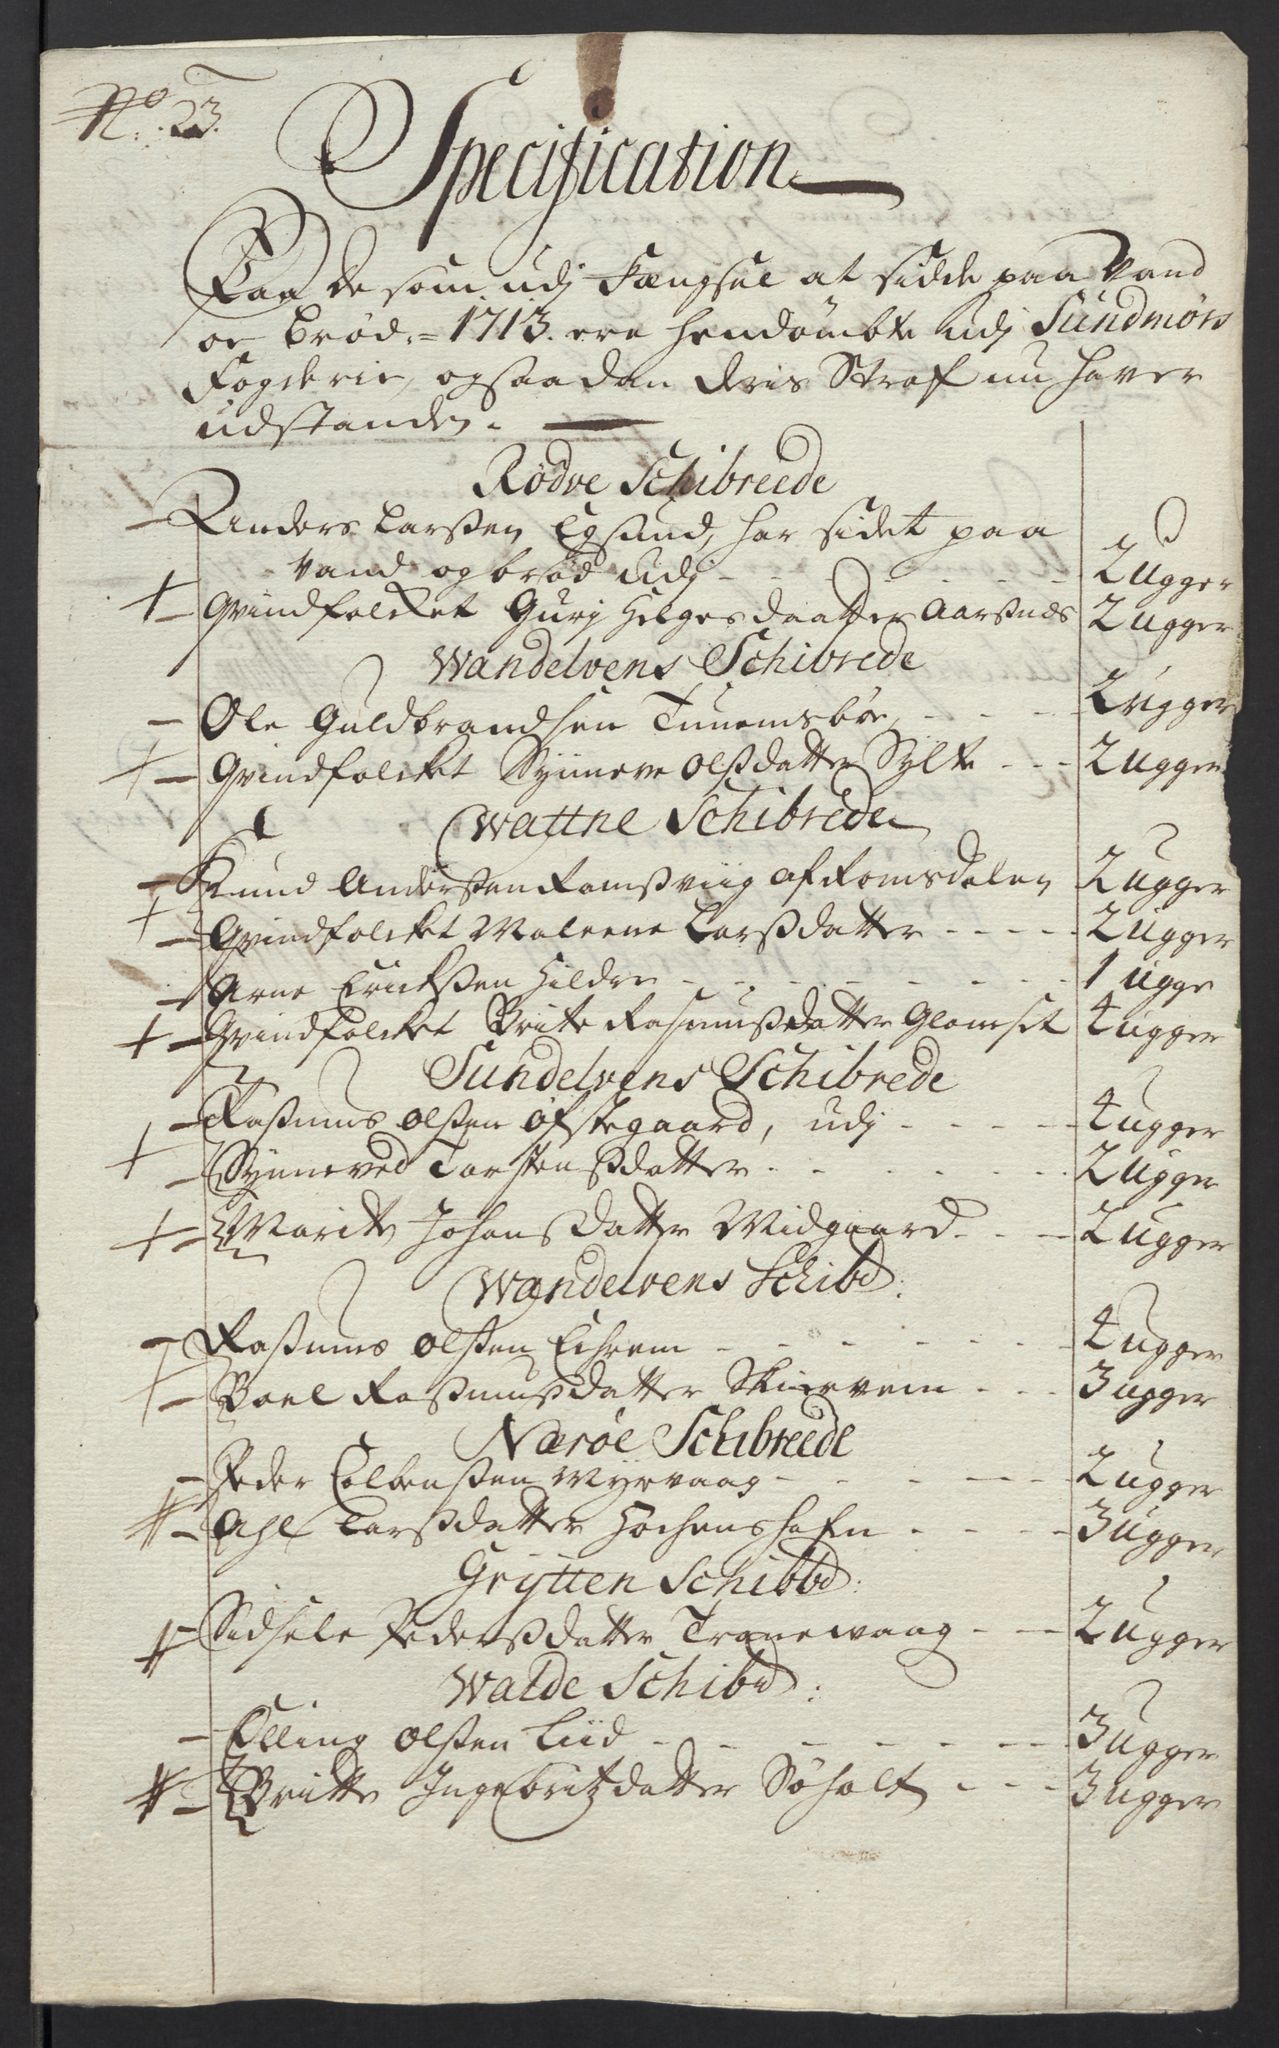 No. 23.
Specification
Paa de som udj Fængsel at sidde paa Vand
oc brød = 1713. ere hendömbte udj Sundmørs
Fogderie, og saadan deris Straf nu haver
udstanden.
Rødve Schibreede
Anders Larßen Egsund, har sidet paa
vand og brød udj - - - - - - - 2 ugger
+ Qvindfolcket Gurj Helgesdaatter Aarßnæs 2 ugger
Wandelvens Schibrede
Ole Guldbrandsen Tunemsböe, - - - 2 ugger
+ Qvindfolcket Synneve Olßdatter Sylte - - - 2 ugger
Wattne Schibrede
Knud Anderßen Ramßviig af Romsdalen 2 ugger
+ Qvindfolcket Maleene Larßdatter - - - - - 2 ugger
Arne Erickßen Hildre - - - - - - - 1 ugge
+ Qvindfolcket Brite Rasmußdatter Glomset 4 ugger
Sundelvens Schibrede
Raßmus Olßen Øfstegaard, udj - - - - - 4 ugger
+ Synneved Torstenßdatter - - - - - - 2 ugger
+ Marite Johanßdatter Midgaard - - - 2 ugger
Wandelvens Schibd:
Raßmus Olßen Echrem - - - - - - - 4 ugger
+ Boel Raßmußdatter Skiervem - - - 3 ugger
Nærøe Schibreede
Peder Colbenßen Myrvaag - - - - - - 2 ugger
# Ahl Larßdatter Hochenshafn - - - - 3 ugger
Grytten Schibbd:
# Sidsele Pederßdatter Tranewaag - - - 2 ugger
Walde Schibd:
Elling Olßen Liid - - - - - - - - 3 ugger
# Britte Ingebritzdatter Søholt - - - 3 ugger